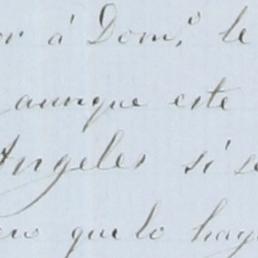 or á Dom,º le
aunque este
Angeles si s
ero que lo hay